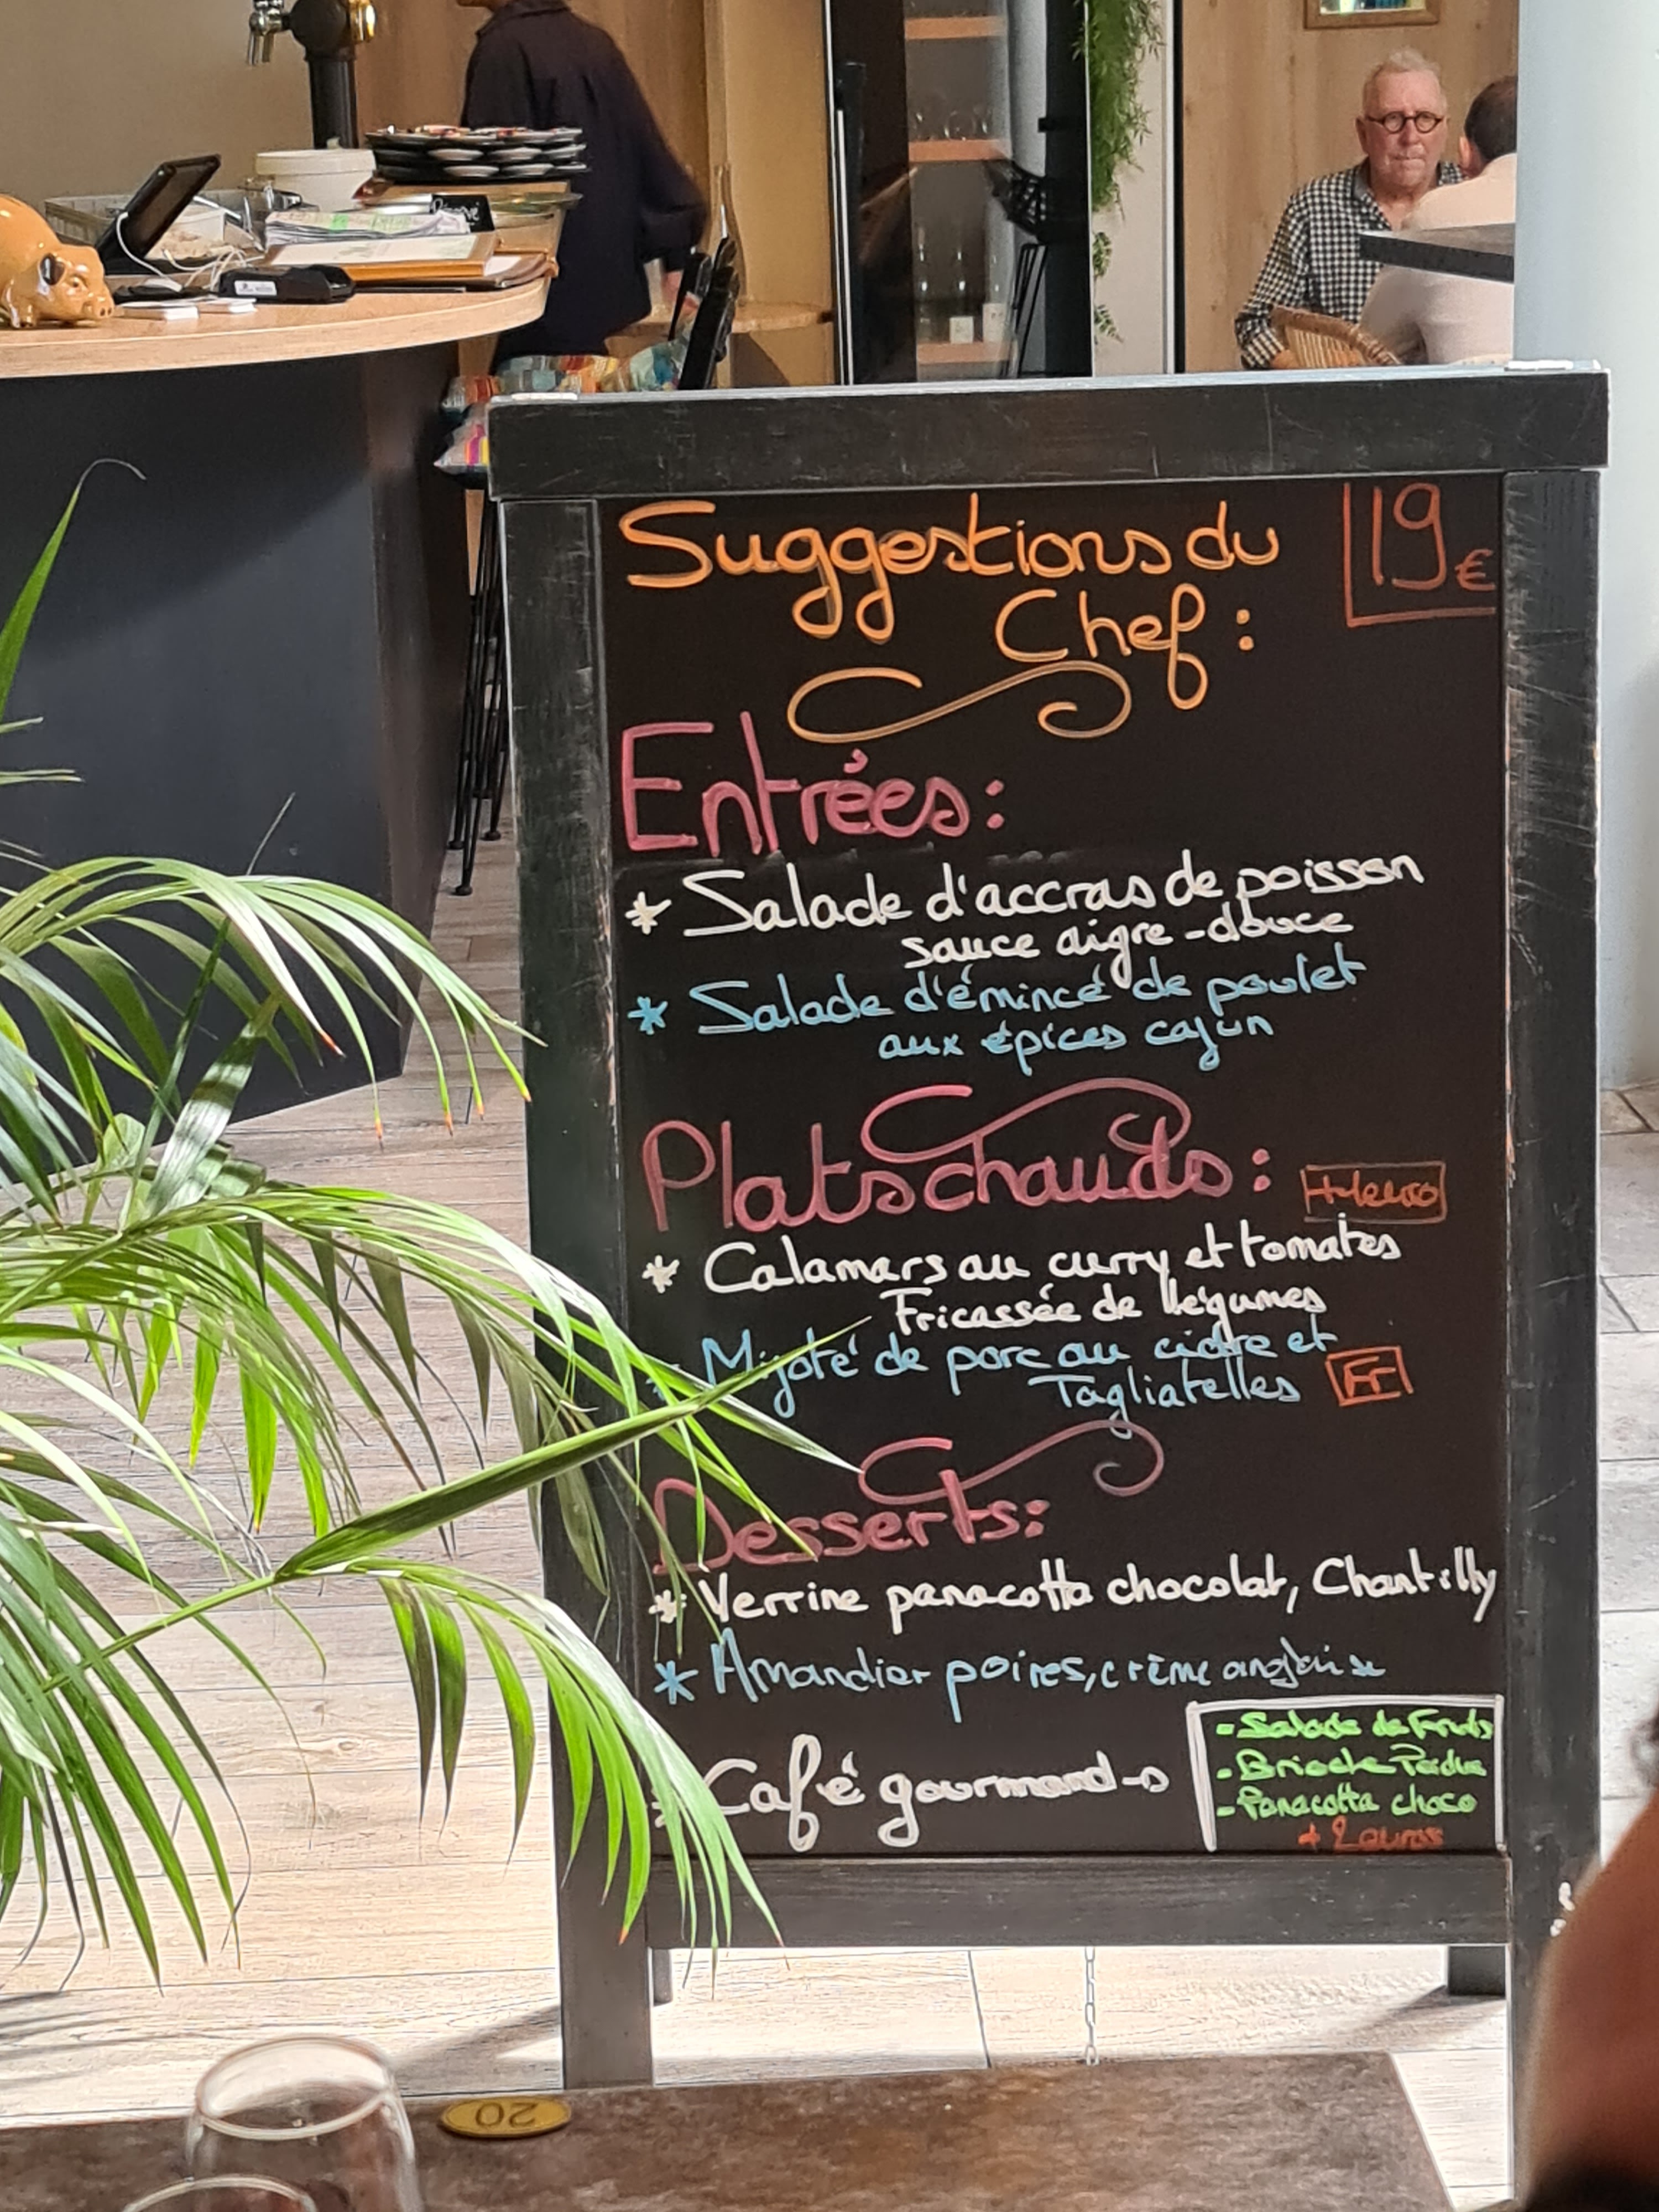 Suggestions du
Chef :
19€
Entrées :
* Salade d'accras de poisson
sauce aigre-douce
* Salade d'émincé de poulet
aux épices cajun
Plats chauds :
* Calamars au curry et tomates
Fricassée de légumes
* Mijoté de porc au cidre et
Tagliatelles
Fr
Desserts :
* Verrine panacotta chocolat, Chantilly
* Amandier poires, crème anglaise
* Café gourmand →
- Salade de Fruits
- Brioche Perdue
- Panacotta choco
+ 2 euros
20